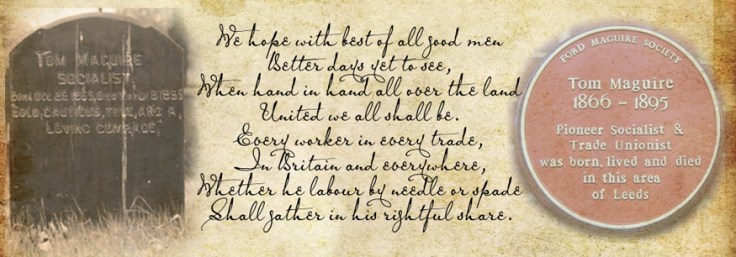 TOM MAGUIRE
SOCIALIST,
BORN DEC
BOLD, CAUTIOUS, TRUE, AND A
LOVING COMRADE,
We hope with best of all good men
Better days yet to see,
When hand in hand all over the land
United we all shall be.
Every worker in every trade,
In Britain and everywhere,
Whether he labour by needle or spade
Shall gather in his rightful share.
FORD MAGUIRE SOCIETY
Tom Maguire
1866 - 1895
Pioneer Socialist &
Trade Unionist
was born, lived and died
in this area
of Leeds